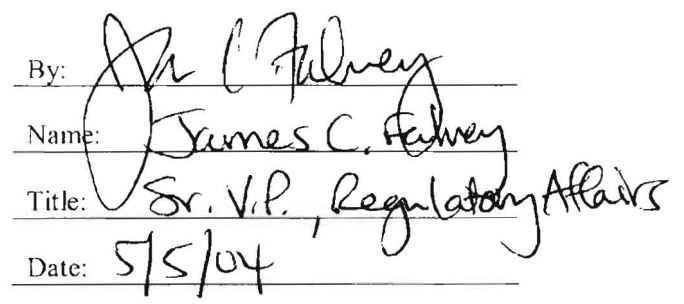 By: Jm C Falvey
Name: James C. Falvey
Title: Sr. V.P., Regulatory Affairs
Date: 5/5/04